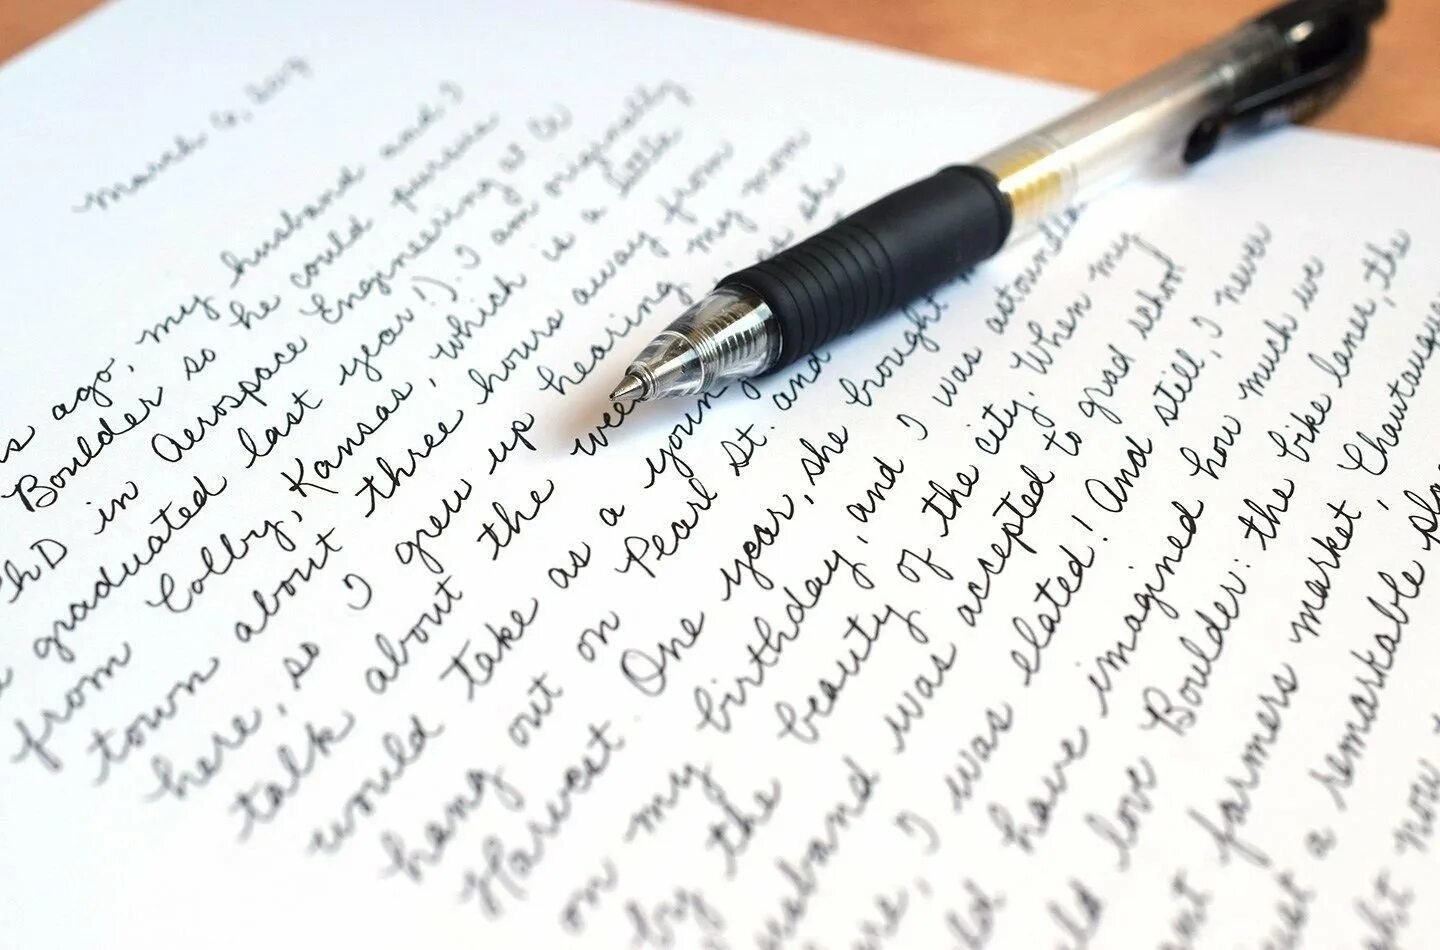 March 6, 2017
ago, my husband and I
Boulder so he could pursue
PhD in Aerospace Engineering at CU
graduated last year!). I am originally
from Colby, Kansas, which is a little
town about three hours away from
here, so I grew up hearing my mom
talk about the she
would take as a young
hang out on Pearl St. and
Harvest. One year, she brought
on my birthday, and I was
by the beauty of the city. When my
husband was accepted to grad school
I was elated! And still, I never
have imagined how much we
love Boulder: the bike lanes, the
farmers market, Chautauqua
a remarkable
now